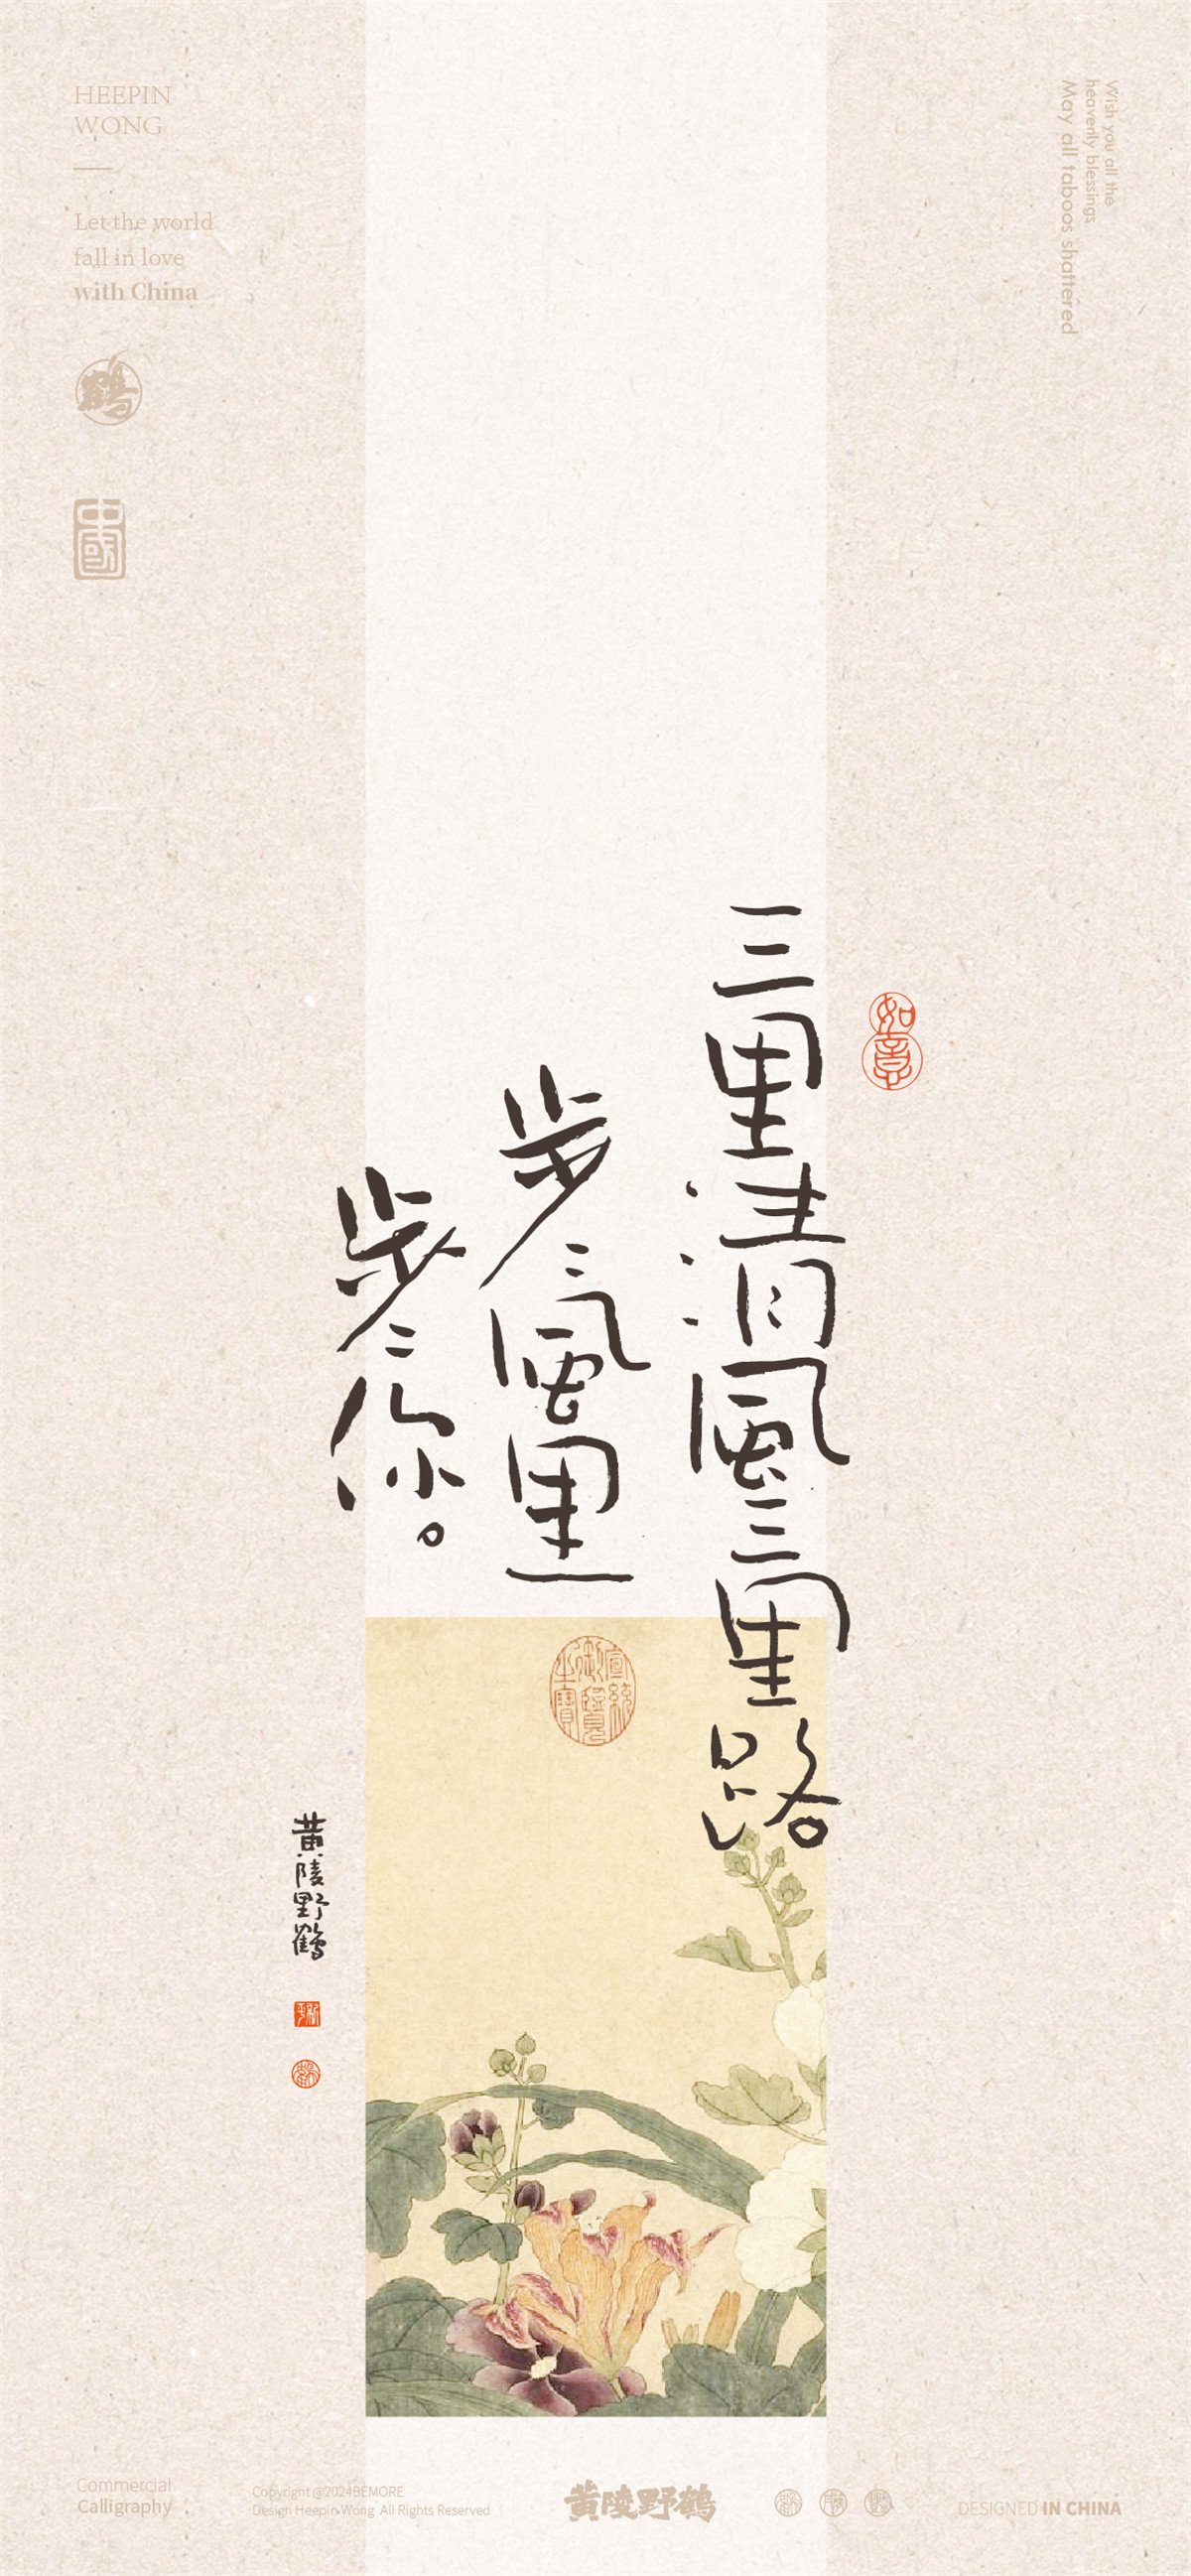 HEEPIN
WONG
Let the world
fall in love
with China
鹤
中國
Wish you all the
heavenly blessings
May all taboos shattered
三里清风三里路
步々风里
步々你。
如意
宣統御覽之寶
黄陵野鹤
Commercial
Calligraphy
Copyright @2024BEMORE
Design Heepin Wong All Rights Reserved
黄陵野鹤
DESIGNED IN CHINA